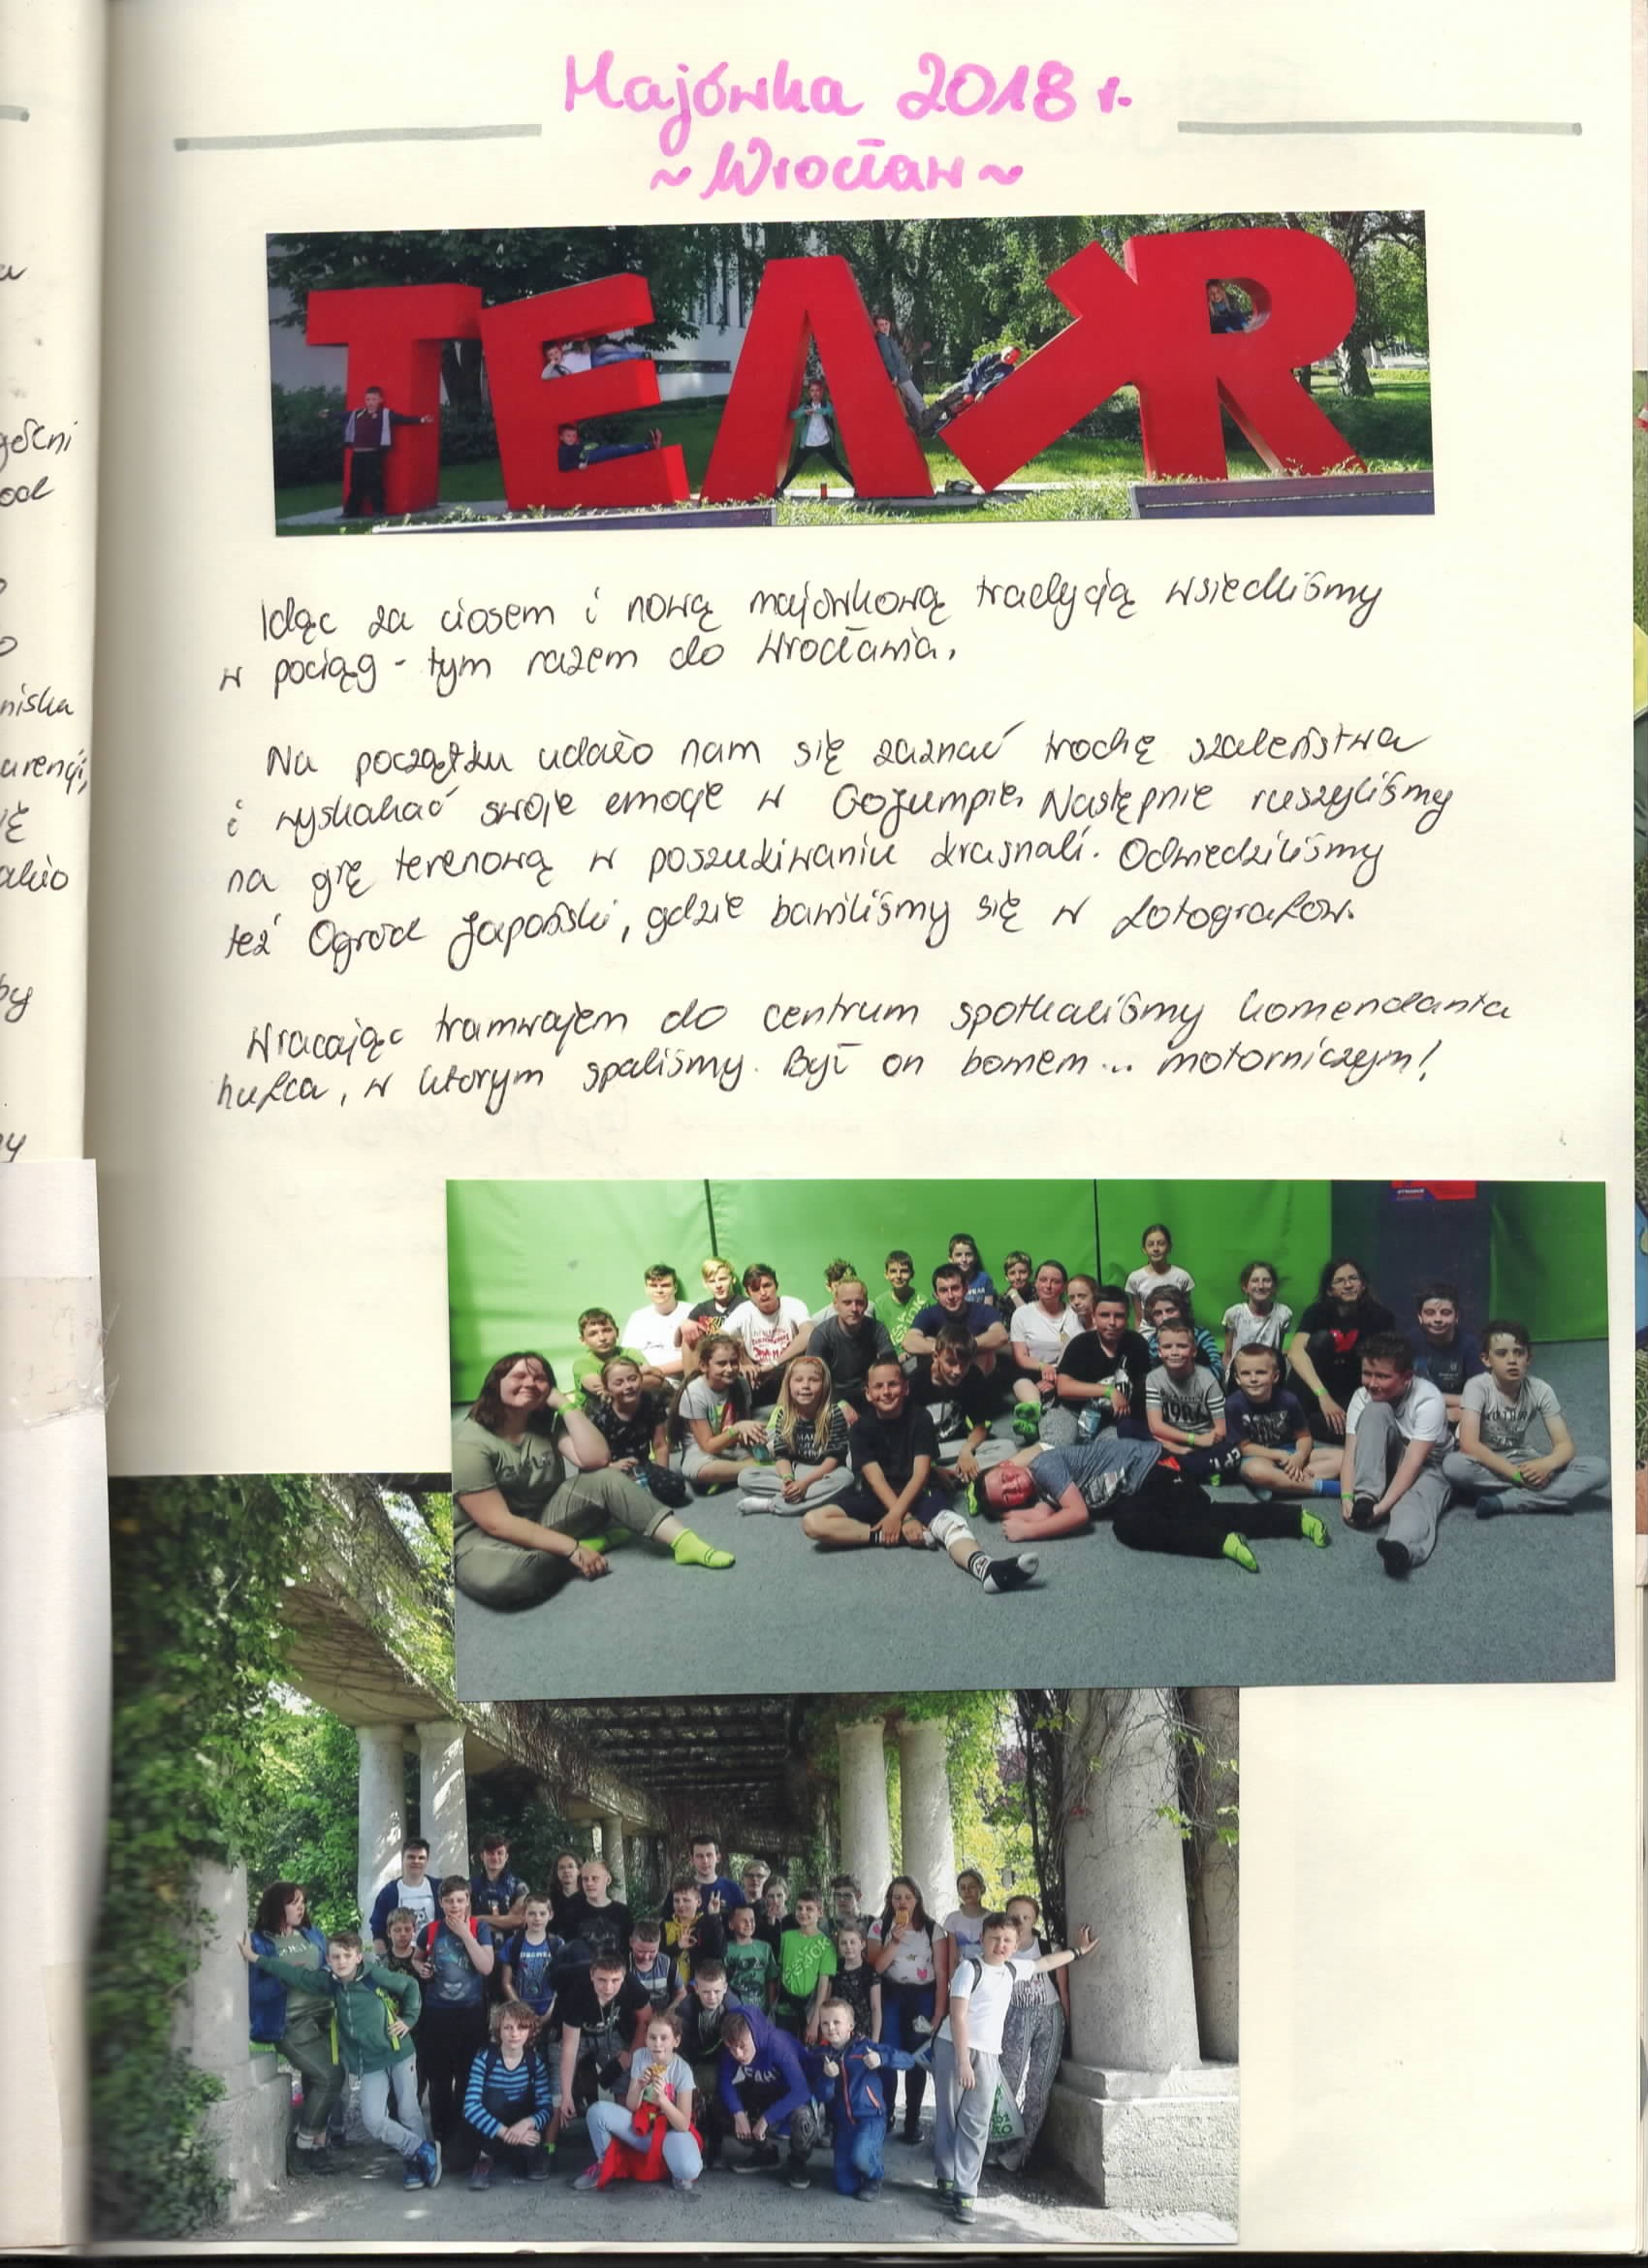 Majówka 2018 r.
~ Wrocław ~
TEATR
Idąc za ciosem i nową majówkową tradycją wsiedliśmy
w pociąg - tym razem do Wrocławia.
Na początku udało nam się zaznać trochę szaleństwa
i wyskakać swoje emocje w GoJumpie. Następnie ruszyliśmy
na grę terenową w poszukiwaniu krasnali. Odwiedziliśmy
też Ogród Japoński, gdzie bawiliśmy się w fotografów.
Wracając tramwajem do centrum spotkaliśmy komendanta
hufca, w którym spaliśmy. Był on bowem... motorniczym!
1984